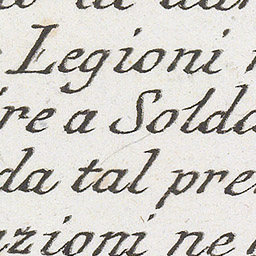 Legioni
re a Solda
da tal pre
azioni ne